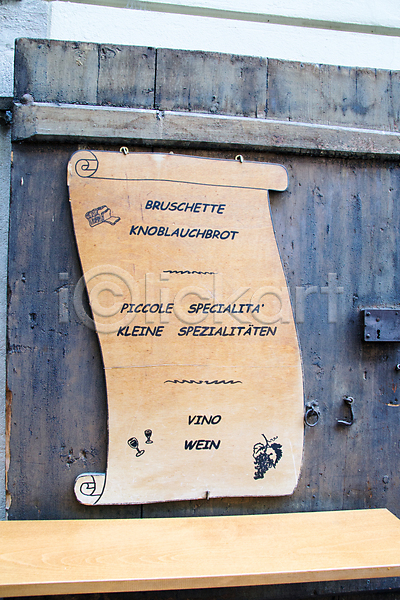 BRUSCHETTE
KNOBLAUCHBROT
PICCOLE SPECIALITA'
KLEINE SPEZIALITÄTEN
iclickart
VINO
WEIN